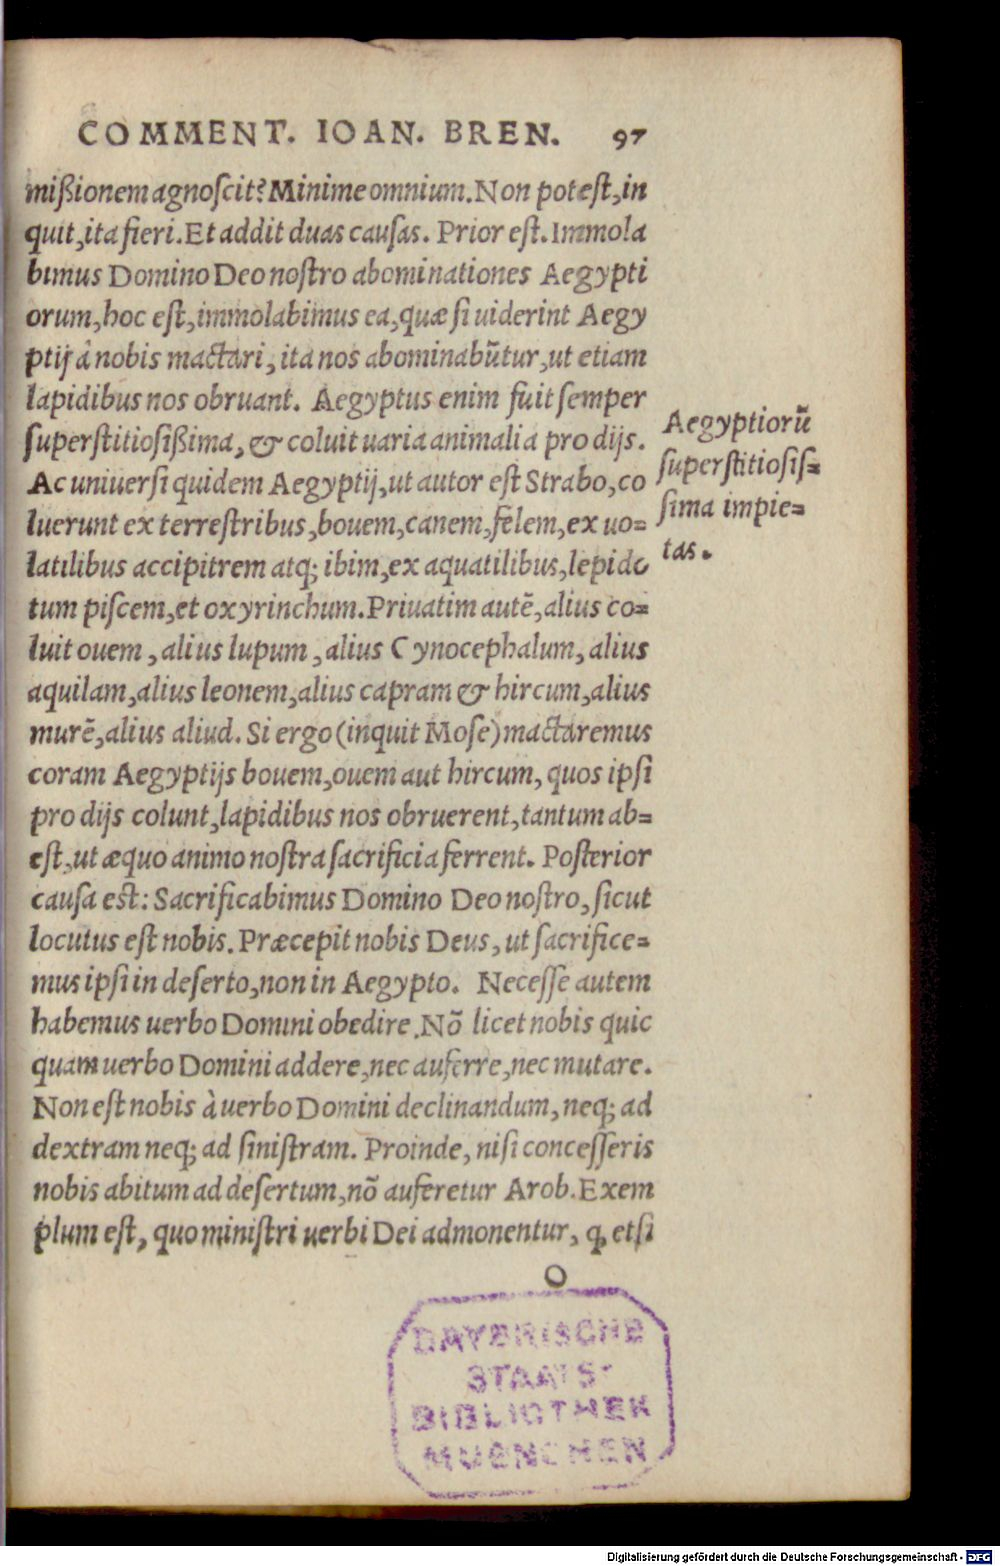 COMMENT. IOAN. BREN. 97
mißionem agnoscit? Minime omnium. Non potest, in
quit, ita fieri. Et addit duas causas. Prior est. Immola
bimus Domino Deo nostro abominationes Aegypti
orum, hoc est, immolabimus ea, quæ si uiderint Aegy
ptij à nobis mactari, ita nos abominabũtur, ut etiam
lapidibus nos obruant. Aegyptus enim fuit semper
superstitiosißima, & coluit uaria animalia pro dijs.
Ac uniuersi quidem Aegyptij, ut autor est Strabo, co
luerunt ex terrestribus, bouem, canem, felem, ex uo=
latilibus accipitrem atq; ibim, ex aquatilibus, lepido
tum piscem, et oxyrinchum. Priuatim autẽ, alius co=
luit ouem, alius lupum, alius Cynocephalum, alius
aquilam, alius leonem, alius capram & hircum, alius
murẽ, alius aliud. Si ergo (inquit Mose) mactaremus
coram Aegyptijs bouem, ouem aut hircum, quos ipsi
pro dijs colunt, lapidibus nos obruerent, tantum ab=
est, ut æquo animo nostra sacrificia ferrent. Posterior
causa est: Sacrificabimus Domino Deo nostro, sicut
locutus est nobis. Præcepit nobis Deus, ut sacrifice=
mus ipsi in deserto, non in Aegypto. Necesse autem
habemus uerbo Domini obedire. Nõ licet nobis quic
quam uerbo Domini addere, nec auferre, nec mutare.
Non est nobis à uerbo Domini declinandum, neq; ad
dextram neq; ad sinistram. Proinde, nisi concesseris
nobis abitum ad desertum, nõ auferetur Arob. Exem
plum est, quo ministri uerbi Dei admonentur, ꝙ etsi
O
Aegyptiorũ
superstitiosis=
sima impie=
tas.
BAYERISCHE
STAATS-
BIBLIOTHEK
MUENCHEN
Digitalisierung gefördert durch die Deutsche Forschungsgemeinschaft - DFG